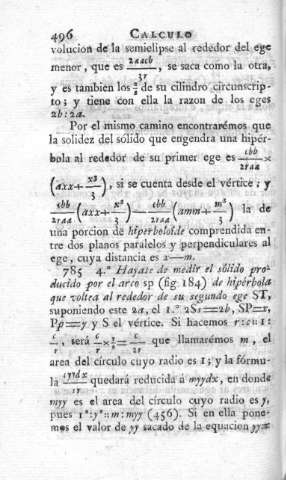 496 CALCULO
volucion de la semielipse al rededor del ege
menor, que es 2aacb/3r, se saca como la otra,
y es tambien los 2/3 de su cilindro circunscrip-
to; y tiene con ella la razon de los eges
2b: 2a.
Por el mismo camino encontrarémos que
la solidez del sólido que engendra una hipér-
bola al rededor de su primer ege es cbb/2raa ×
(axx + x³/3), si se cuenta desde el vértice; y
cbb/2raa (axx + x³/3) — cbb/2raa (amm + m³/3) la de
una porcion de hiperboloide comprendida en-
tre dos planos paralelos y perpendiculares al
ege, cuya distancia es x—m.
785 4.° Hayase de medir el sólido pro-
ducido por el arco sp (fig. 184) de hipérbola
que voltea al rededor de su segundo ege ST,
suponiendo este 2a, el 1.° 2Ss=2b, SP=x,
Pp=y y S el vértice. Si hacemos r:c::1:
c/r, será c/r × 1/2 = c/2r que llamarémos m, el
area del círculo cuyo radio es 1; y la fórmu-
la cyydx/2r quedará reducida á myydx, en donde
myy es el area del círculo cuyo radio es y,
pues 1²:y²::m:myy (456). Si en ella pone-
mos el valor de yy sacado de la equacion yy=